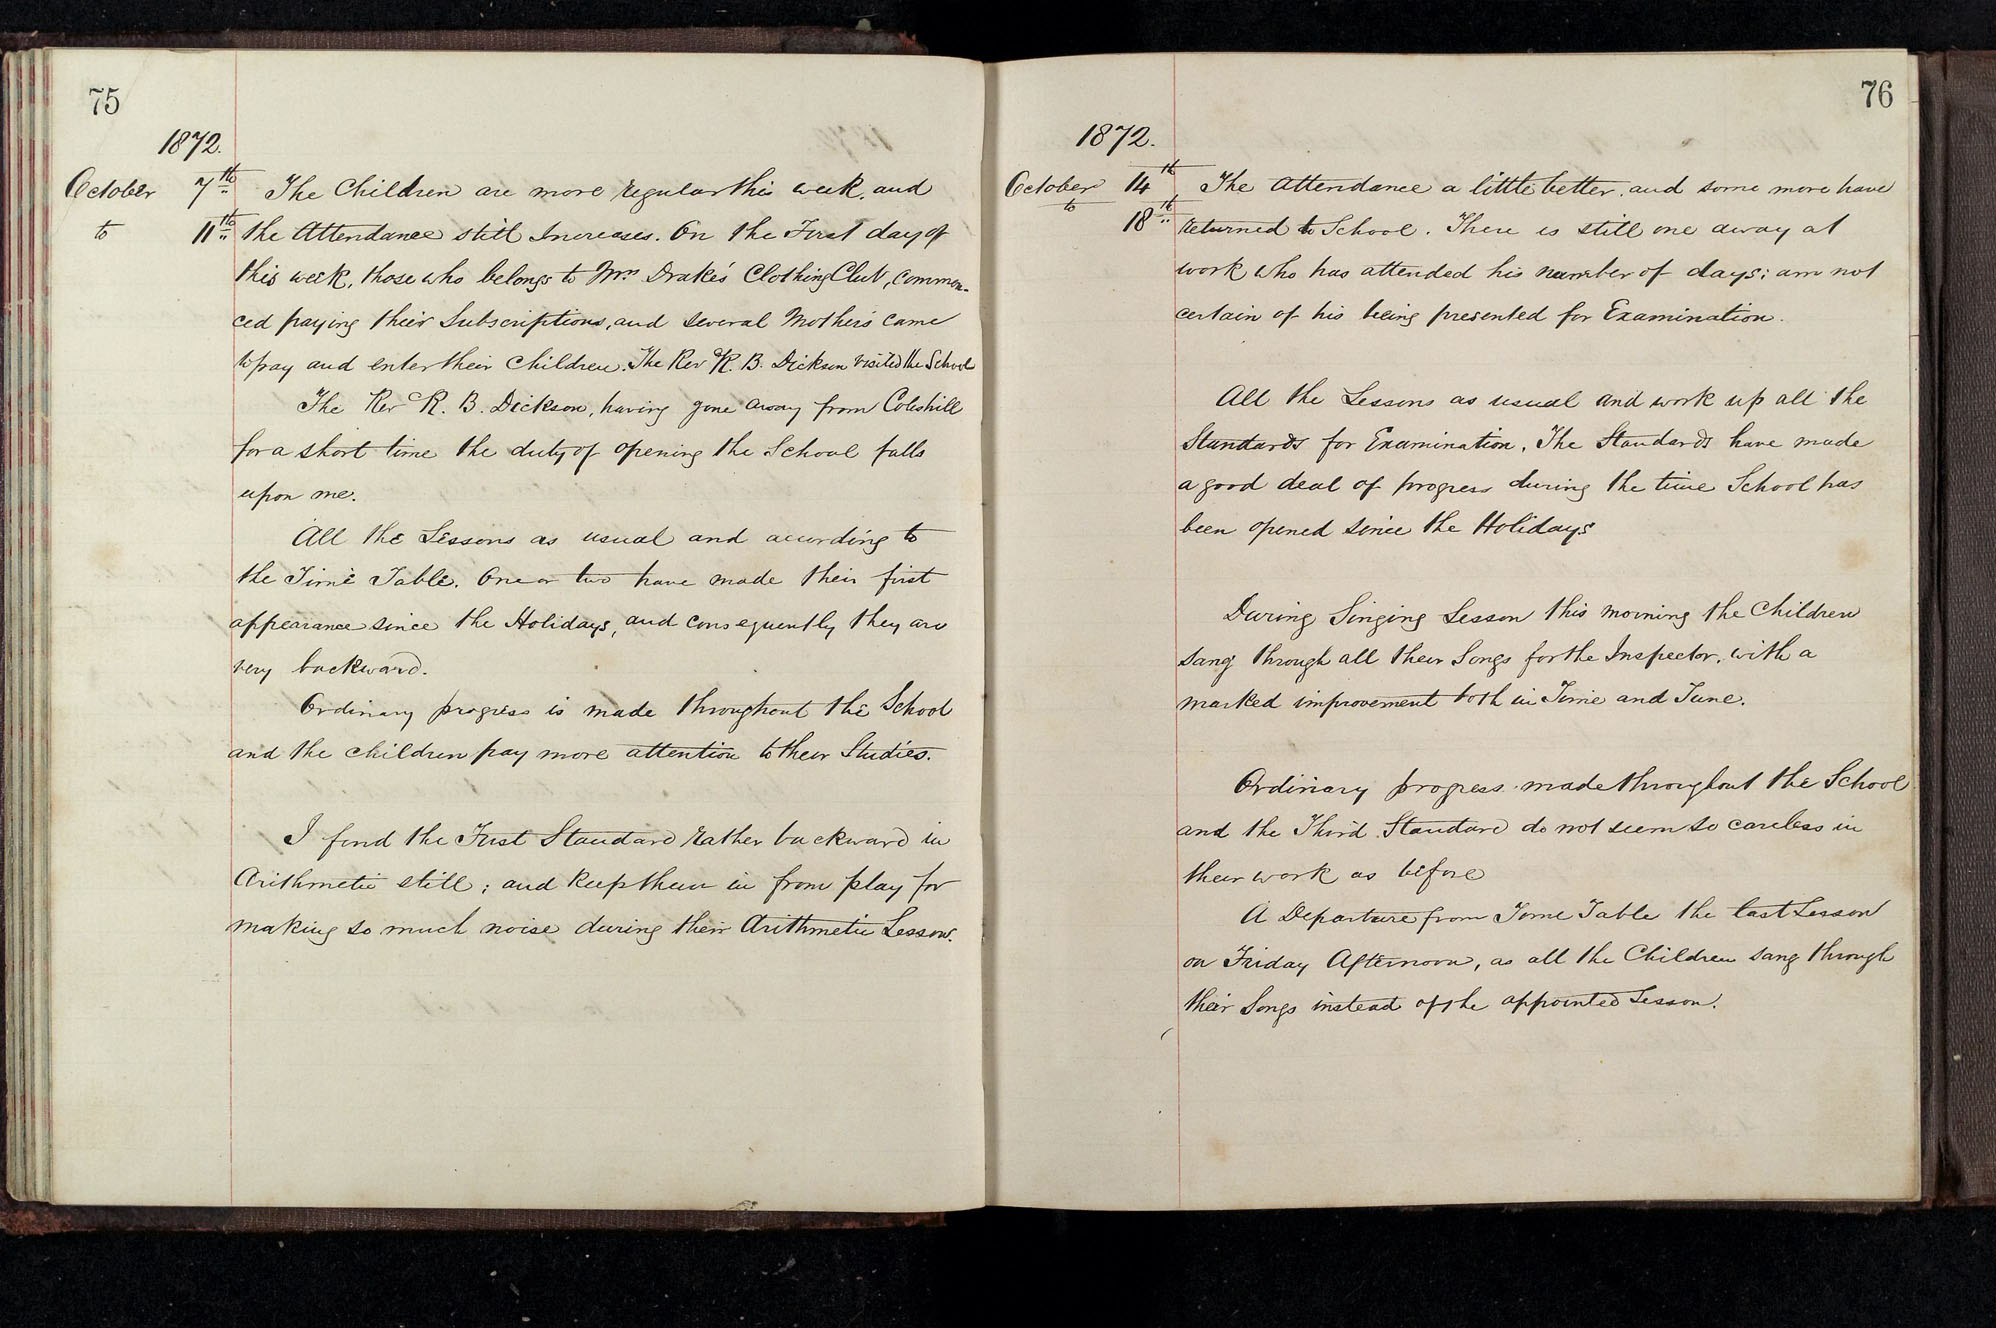 75
1872.
October 7th The Children are more regular this week, and
to 11th the Attendance still Increases. On the First day of
this week, those who belongs to Mrs Drake's Clothing Club, commen-
ced paying their Subscriptions, and several Mothers came
to pay and enter their Children. The Rev R. B. Dickson visited the School
The Rev R. B. Dickson, having gone away from Coleshill
for a short time the duty of opening the School falls
upon me.
All the Lessons as usual and according to
the Time Table. One or two have made their first
appearance since the Holidays, and consequently they are
very backward.
Ordinary progress is made throughout the School
and the children pay more attention to their Studies.
I find the First Standard rather backward in
Arithmetic still; and keep them in from play for
making so much noise during their Arithmetic Lesson.
76
1872.
October 14th The attendance a little better, and some more have
to 18th returned to School. There is still one away at
work who has attended his number of days; am not
certain of his being presented for Examination.
All the Lessons as usual and work up all the
Standards for Examination. The Standards have made
a good deal of progress during the time School has
been opened since the Holidays
During Singing Lesson this morning the Children
sang through all their Songs for the Inspector, with a
marked improvement both in Time and Tune.
Ordinary progress made throughout the School
and the Third Standard do not seem so careless in
their work as before
A Departure from Time Table the last Lesson
on Friday Afternoon, as all the Children sang through
their Songs instead of the appointed Lesson.